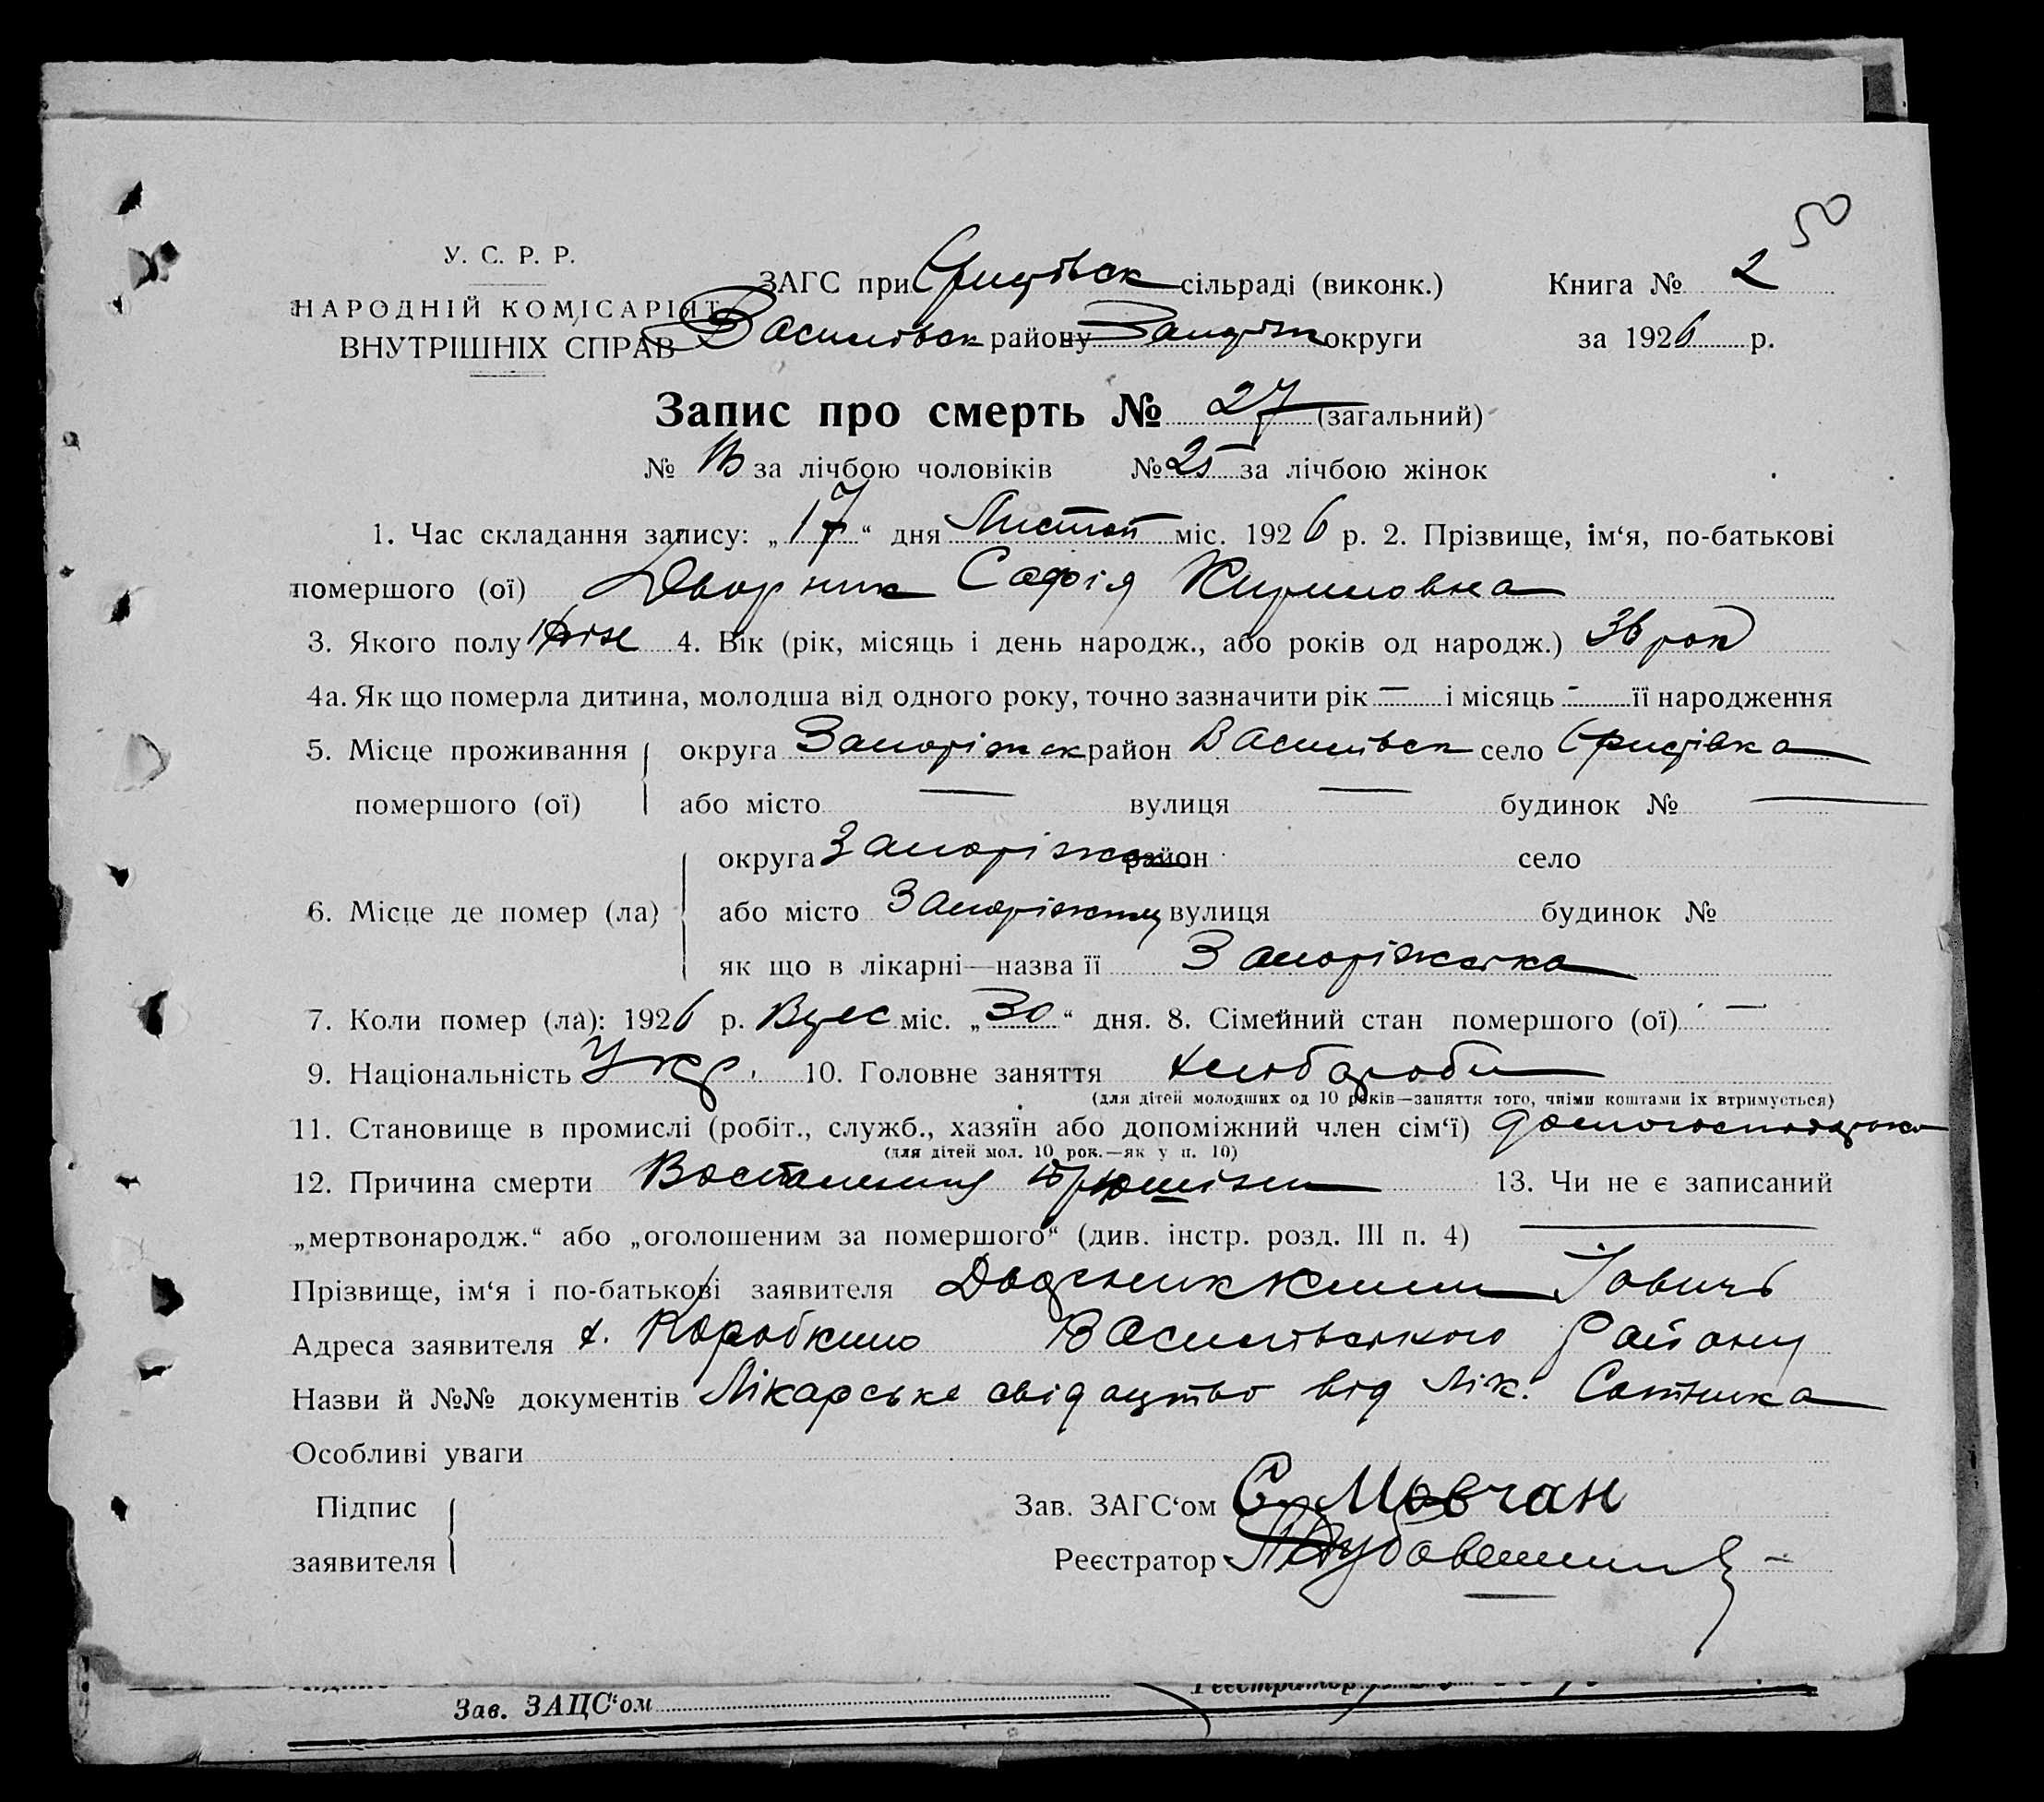 50
У. С. Р. Р.
НАРОДНІЙ КОМІСАРІЯТ
ВНУТРІШНІХ СПРАВ
ЗАГС при сільраді (виконк.) Книга № 2
Василівськ району Запоріж округи за 1926 р.
Запис про смерть № 27 (загальний)
№ за лічбою чоловіків № 25 за лічбою жінок
1. Час складання запису: „17“ дня Листоп міс. 1926 р. 2. Прізвище, ім‘я, по-батькові
помершого (ої) Дворник Софія Кириловна
3. Якого полу жіж 4. Вік (рік, місяць і день народж., або років од народж.) 36 рок
4а. Як що померла дитина, молодша від одного року, точно зазначити рік — і місяць - її народження
5. Місце проживання округа Запоріжск район Василівск село
помершого (ої) або місто — вулиця — будинок № —
округа Запоріжск район село
6. Місце де помер (ла) або місто Запоріжжу вулиця будинок №
як що в лікарні—назва її Запоріжська
7. Коли помер (ла): 1926 р. міс. „30“ дня. 8. Сімейний стан помершого (ої) —
9. Національність Укр. 10. Головне заняття хлібороб
(для дітей молодших од 10 років—заняття того, чиїми коштами їх втримується)
11. Становище в промислі (робіт., служб., хазяїн або допоміжний член сім‘ї) домогосподарка
(для дітей мол. 10 рок.—як у п. 10)
12. Причина смерти 13. Чи не є записаний
„мертвонародж.“ або „оголошеним за помершого“ (див. інстр. розд. III п. 4) —
Прізвище, ім‘я і по-батькові заявителя Дворник
Адреса заявителя х. Коробкино Василівського Району
Назви й №№ документів Лікарське свідоцтво від лік. Сотника
Особливі уваги
Підпис
заявителя
Зав. ЗАГС‘ом С. Мовчан
Реєстратор
Зав. ЗАЦС‘ом Реєстратор